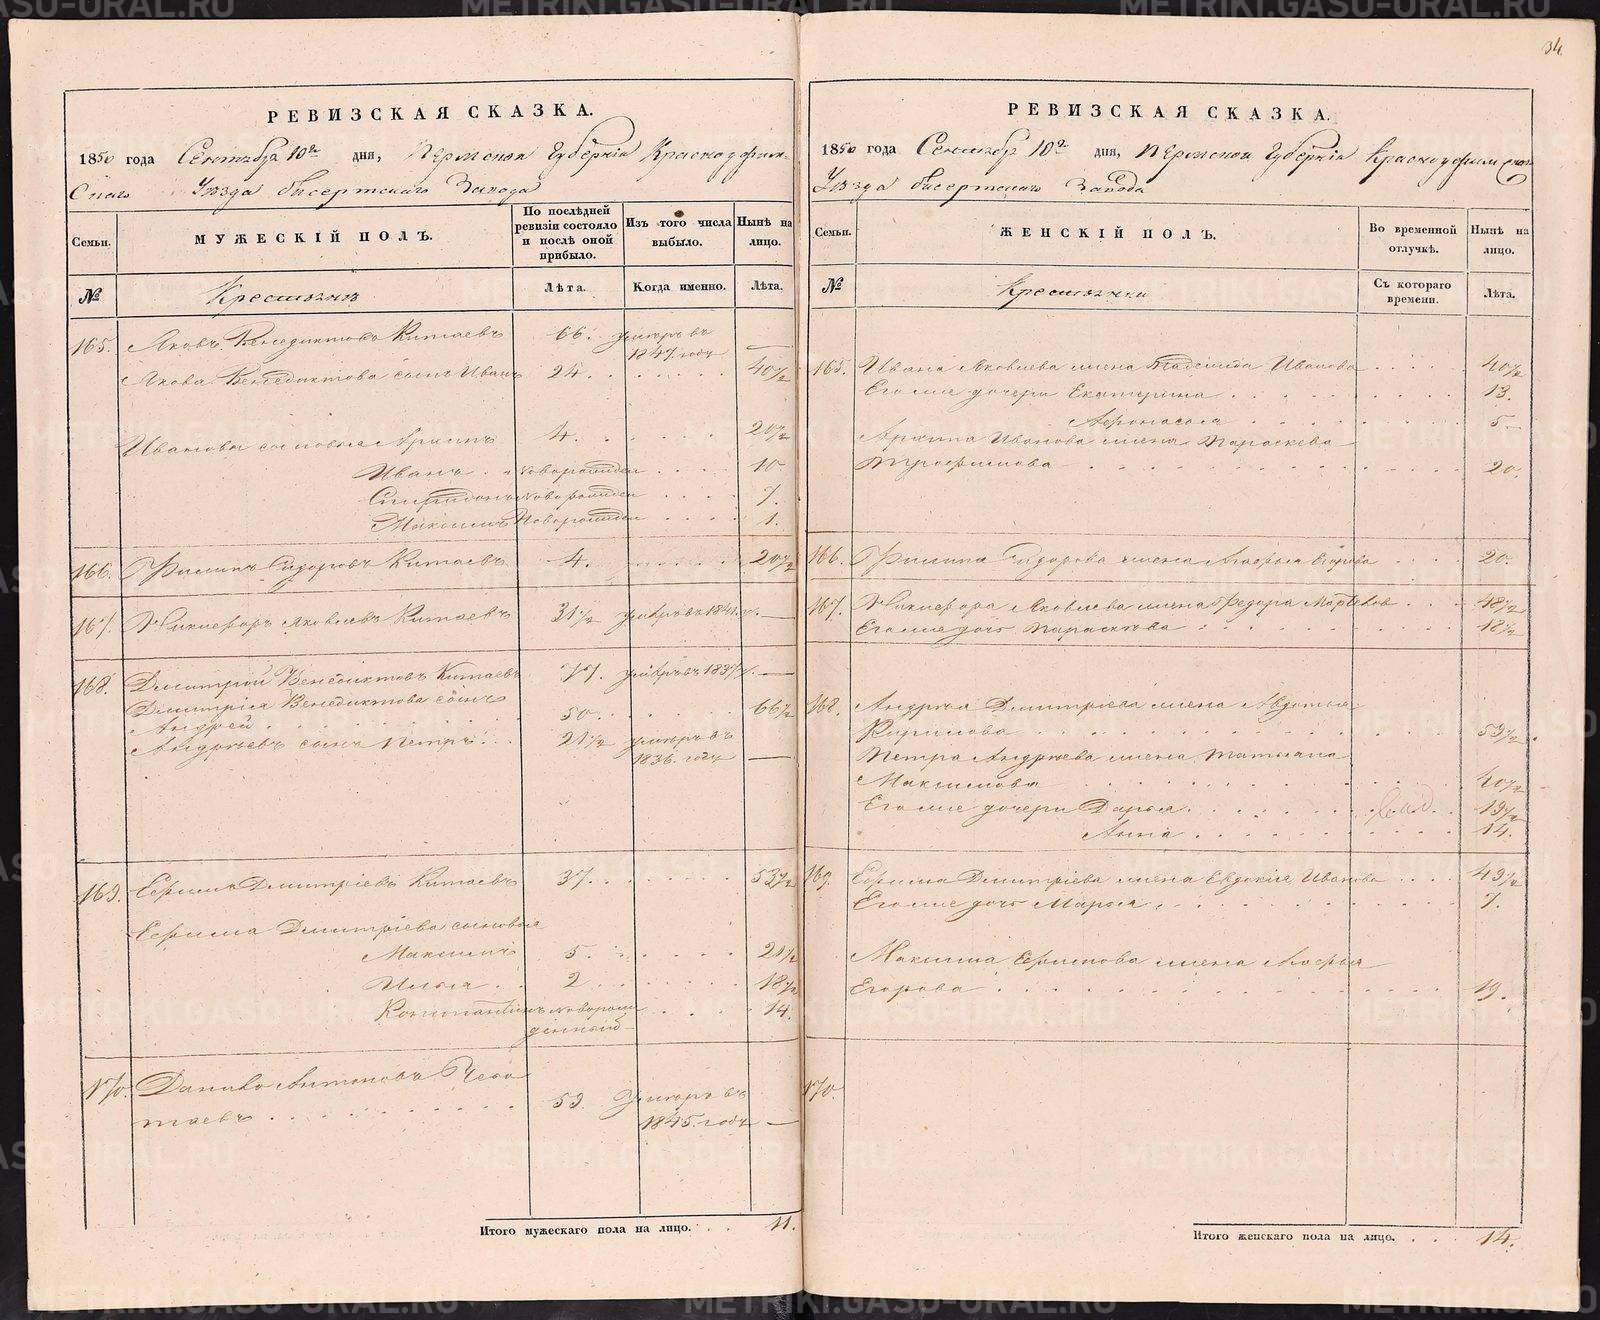 34.
РЕВИЗСКАЯ СКАЗКА.
1850 года Сентября 10го дня, Пермской Губернiи Красноуфим-
скаго Уѣзда Бисертскаго Завода
Семьи.
МУЖЕСКIЙ ПОЛЪ.
По послѣдней
ревизiи состояло
и послѣ оной
прибыло.
Изъ того числа
выбыло.
Нынѣ на
лицо.
№
Крестьянъ
Лѣта.
Когда именно.
Лѣта.
165. Яковъ Венедиктовъ Китаевъ 66. умеръ въ
1847. году —
Якова Венедиктова сынъ Иванъ 24. 40½
Ивановы сыновья Архипъ 4. 20½
Иванъ новорожден 10
Спиридонъ новорожден 7.
Максимъ новорожден 1.
166. Филипъ Сидоровъ Китаевъ 4. 20½
167. Никифоръ Яковлевъ Китаевъ 31½ умеръ въ —
168. Дмитрiй Венедиктовъ Китаевъ 77. умеръ въ 1837 г. —
Дмитрiя Венедиктова сынъ
Андрей 50. 66½
Андреевъ сынъ Петръ 21½ умеръ въ
1836. году —
169. Ефимъ Дмитрiевъ Китаевъ 37. 53½
Ефима Дмитрiева сыновья
Максимъ 5. 21½
Илья 2 18½
Константинъ новорож
денный 14.
170. Данило Антоновъ Чебо
таевъ 59. Умеръ въ
1845. году —
Итого мужескаго пола на лицо. 11.
РЕВИЗСКАЯ СКАЗКА.
1850 года Сентября 10го дня, Пермской Губернiи Красноуфимскаго
Уѣзда Бисертскаго Завода
Семьи.
ЖЕНСКIЙ ПОЛЪ.
Во временной
отлучкѣ.
Нынѣ на
лицо.
№
Крестьянки
Съ котораго
времени.
Лѣта.
165. Ивана Яковлева жена Иванова 40½
Его же дочери Екатерина 13.
Афонасья 5
Архипа Иванова жена Параскева
Трофимова 20.
166. Филипа Сидорова жена Агафья Егорова 20.
167. Никифора Яковлева жена Федора Маркелов 48½
Его же дочь Параскева 18½
168. Андрея Дмитрiева жена Авдотья
Кирилова 59½
Петра Андреева жена Татьяна
Максимова 40½
Его же дочери Дарья 19½
Анна 14.
169. Ефима Дмитрiева жена Евдокiя Иванова 49½
Его же дочь Марья 7.
Максима Ефимова жена Агафья
Егорова 19.
170.
Итого женскаго пола на лицо. 14.
METRIKI.GASO-URAL.RU